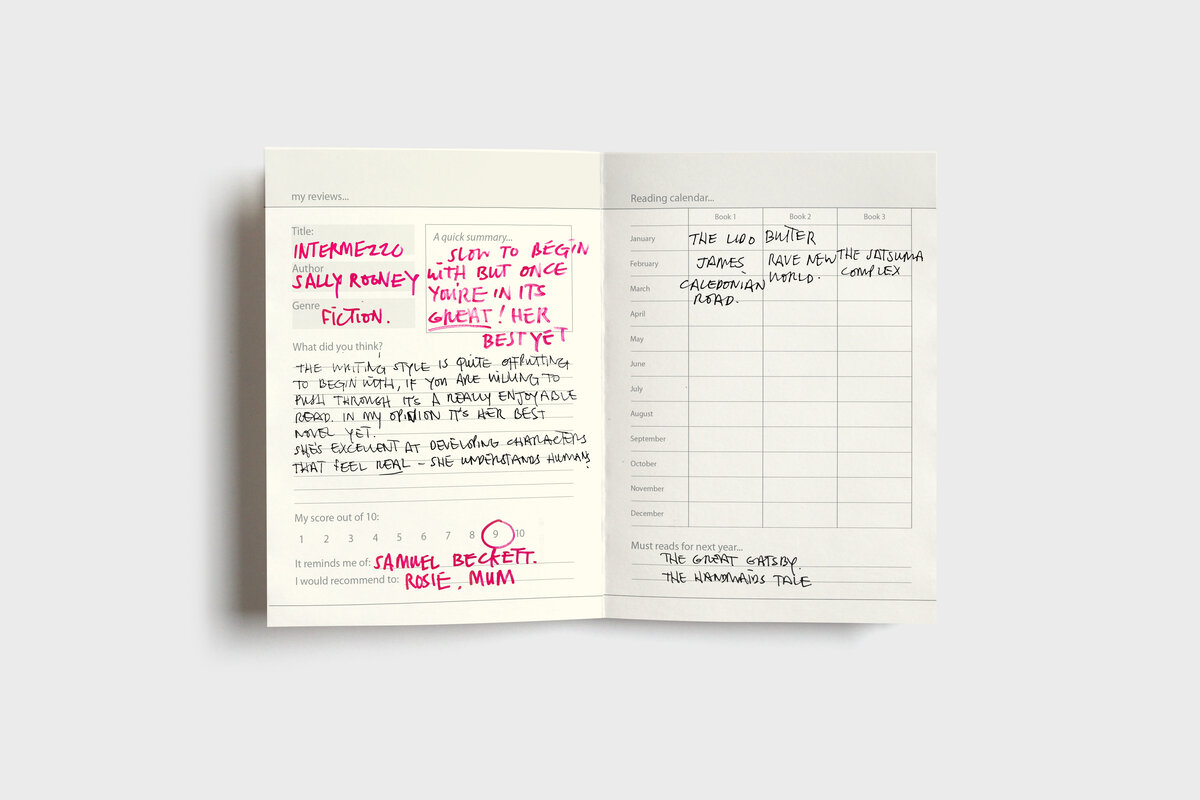 my reviews...
Title:
INTERMEZZO
Author
SALLY ROONEY
Genre
FICTION.
A quick summary...
SLOW TO BEGIN
WITH BUT ONCE
YOU'RE IN ITS
GREAT! HER
BEST YET
What did you think?
THE WRITING STYLE IS QUITE OFFPUTTING
TO BEGIN WITH, IF YOU ARE WILLING TO
PUSH THROUGH IT'S A REALLY ENJOYABLE
READ. IN MY OPINION IT'S HER BEST
NOVEL YET.
SHE'S EXCELLENT AT DEVELOPING CHARACTERS
THAT FEEL REAL – SHE UNDERSTANDS HUMANS
My score out of 10:
1 2 3 4 5 6 7 8 9 10
It reminds me of: SAMUEL BECKETT.
I would recommend to: ROSIE, MUM
Reading calendar...
Book 1 Book 2 Book 3
January THE LIDO BUTTER
February JAMES RAVE NEW WORLD. THE SATSUMA COMPLEX
March CALEDONIAN ROAD.
April
May
June
July
August
September
October
November
December
Must reads for next year...
THE GREAT GATSBY.
THE HANDMAIDS TALE